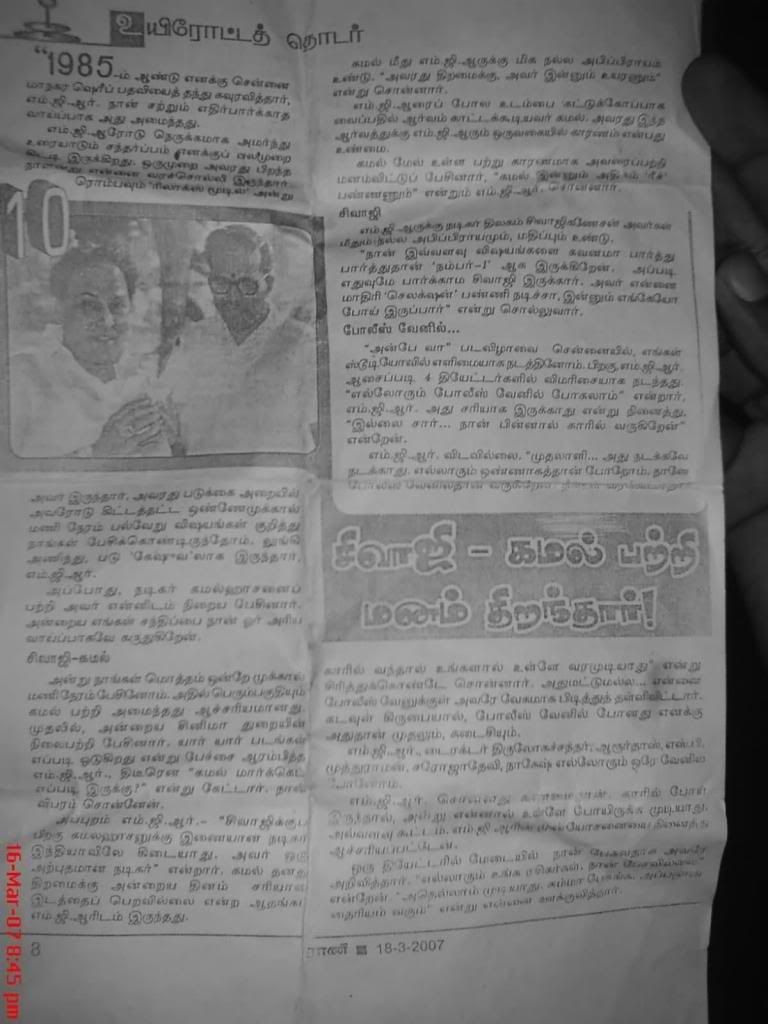 உயிரோட்டத் தொடர்
"1985-ம் ஆண்டு எனக்கு சென்னை
மாநகர ஷெரீப் பதவியைத் தந்து கவுரவித்தார்,
எம்.ஜி.ஆர். நான் சற்றும் எதிர்பார்க்காத
வாய்ப்பாக அது அமைந்தது.
எம்.ஜி.ஆரோடு நெருக்கமாக அமர்ந்து
உரையாடும் சந்தர்ப்பம் எனக்குப் பலமுறை
கிட்டி இருக்கிறது. ஒருமுறை அவரது பிறந்த
நாளன்று என்னை வரச்சொல்லி இருந்தார்.
ரொம்பவும் 'ரிலாக்ஸ் மூடில்' அன்று
10
அவர் இருந்தார். அவரது படுக்கை அறையில்
அவரோடு கிட்டத்தட்ட ஒண்ணேமுக்கால்
மணி நேரம் பல்வேறு விஷயங்கள் குறித்து
நாங்கள் பேசிக்கொண்டிருந்தோம். லுங்கி
அணிந்து, படு 'கேஷுவ'லாக இருந்தார்,
எம்.ஜி.ஆர்.
அப்போது, நடிகர் கமல்ஹாசனைப்
பற்றி அவர் என்னிடம் நிறைய பேசினார்.
அன்றைய எங்கள் சந்திப்பை நான் ஓர் அரிய
வாய்ப்பாகவே கருதுகிறேன்.
சிவாஜி-கமல்
அன்று நாங்கள் மொத்தம் ஒன்றே முக்கால்
மணிநேரம் பேசினோம். அதில் பெரும்பகுதியும்
கமல் பற்றி அமைந்தது ஆச்சரியமானது.
முதலில், அன்றைய சினிமா துறையின்
நிலைபற்றி பேசினார். யார் யார் படங்கள்
எப்படி ஓடுகிறது என்று பேச்சை ஆரம்பித்த
எம்.ஜி.ஆர்., திடீரென "கமல் மார்க்கெட்
எப்படி இருக்கு?" என்று கேட்டார். நான்
விபரம் சொன்னேன்.
அப்புறம் எம்.ஜி.ஆர்.- "சிவாஜிக்குப்
பிறகு கமலஹாசனுக்கு இணையான நடிகர்
இந்தியாவிலே கிடையாது. அவர் ஒரு
அற்புதமான நடிகர்" என்றார். கமல் தனது
திறமைக்கு அன்றைய தினம் சரியான
இடத்தைப் பெறவில்லை என்ற ஆதங்கம்
எம்.ஜி.ஆரிடம் இருந்தது.
கமல் மீது எம்.ஜி.ஆருக்கு மிக நல்ல அபிப்பிராயம்
உண்டு. "அவரது திறமைக்கு, அவர் இன்னும் உயரணும்"
என்று சொன்னார்.
எம்.ஜி.ஆரைப் போல உடம்பை கட்டுக்கோப்பாக
வைப்பதில் ஆர்வம் காட்டக்கூடியவர் கமல். அவரது இந்த
ஆர்வத்துக்கு எம்.ஜி.ஆரும் ஒருவகையில் காரணம் என்பது
உண்மை.
கமல் மேல் உள்ள பற்று காரணமாக அவரைப்பற்றி
மனம்விட்டுப் பேசினார், "கமல் இன்னும் அதிகம் 'ரீச்'
பண்ணணும்" என்றும் எம்.ஜி.ஆர். சொன்னார்.
சிவாஜி
எம்.ஜி.ஆருக்கு நடிகர் திலகம் சிவாஜிகணேசன் அவர்கள்
மீதும் நல்ல அபிப்பிராயமும், மதிப்பும் உண்டு.
"நான் இவ்வளவு விஷயங்களை கவனமா பார்த்து
பார்த்துதான் 'நம்பர்-1' ஆக இருக்கிறேன். அப்படி
எதுவுமே பார்க்காம சிவாஜி இருக்கார். அவர் என்னை
மாதிரி 'செலக்ஷன்' பண்ணி நடிச்சா, இன்னும் எங்கேயோ
போய் இருப்பார்" என்று சொல்லுவார்.
போலீஸ் வேனில்...
"அன்பே வா" படவிழாவை சென்னையில், எங்கள்
ஸ்டூடியோவில் எளிமையாக நடத்தினோம். பிறகு, எம்.ஜி.ஆர்.
ஆசைப்படி 4 தியேட்டர்களில் விமரிசையாக நடந்தது.
"எல்லோரும் போலீஸ் வேனில் போகலாம்" என்றார்,
எம்.ஜி.ஆர். அது சரியாக இருக்காது என்று நினைத்து,
"இல்லை சார்... நான் பின்னால் காரில் வருகிறேன்"
என்றேன்.
எம்.ஜி.ஆர். விடவில்லை. "முதலாளி... அது நடக்கவே
நடக்காது. எல்லாரும் ஒண்ணாகத்தான் போறோம். நானே
போலீஸ் வேனில்தான் வருகிறேன்.
சிவாஜி - கமல் பற்றி
மனம் திறந்தார்!
காரில் வந்தால் உங்களால் உள்ளே வரமுடியாது" என்று
சிரித்துக்கொண்டே சொன்னார். அதுமட்டுமல்ல... என்னை
போலீஸ் வேனுக்குள் அவரே வேகமாக பிடித்துத் தள்ளிவிட்டார்.
கடவுள் கிருபையால், போலீஸ் வேனில் போனது எனக்கு
அதுதான் முதலும், கடைசியும்.
எம்.ஜி.ஆர்., டைரக்டர் திருலோகச்சந்தர், ஆரூர்தாஸ், எஸ்.பி.
முத்துராமன், சரோஜாதேவி, நாகேஷ் எல்லோரும் ஒரே வேனில்
போனோம்.
எம்.ஜி.ஆர். சொன்னது உண்மைதான். காரில் போய்
இருந்தால், அன்று என்னால் உள்ளே போயிருக்க முடியாது.
அவ்வளவு கூட்டம். எம்.ஜி.ஆரின் முன்யோசனையை நினைத்து
ஆச்சரியப்பட்டேன்.
ஒரு தியேட்டரில் மேடையில் நான் பேசுவதாக அவரே
அறிவித்தார். "எல்லாரும் உங்க ரசிகர்கள். நான் பேசவில்லை"
என்றேன். "அதெல்லாம் முடியாது. சும்மா பேசுங்க. அப்பதான்
தைரியம் வரும்" என்று என்னை ஊக்குவித்தார்.
8
ராணி 18-3-2007
16-Mar-07 8:45 pm